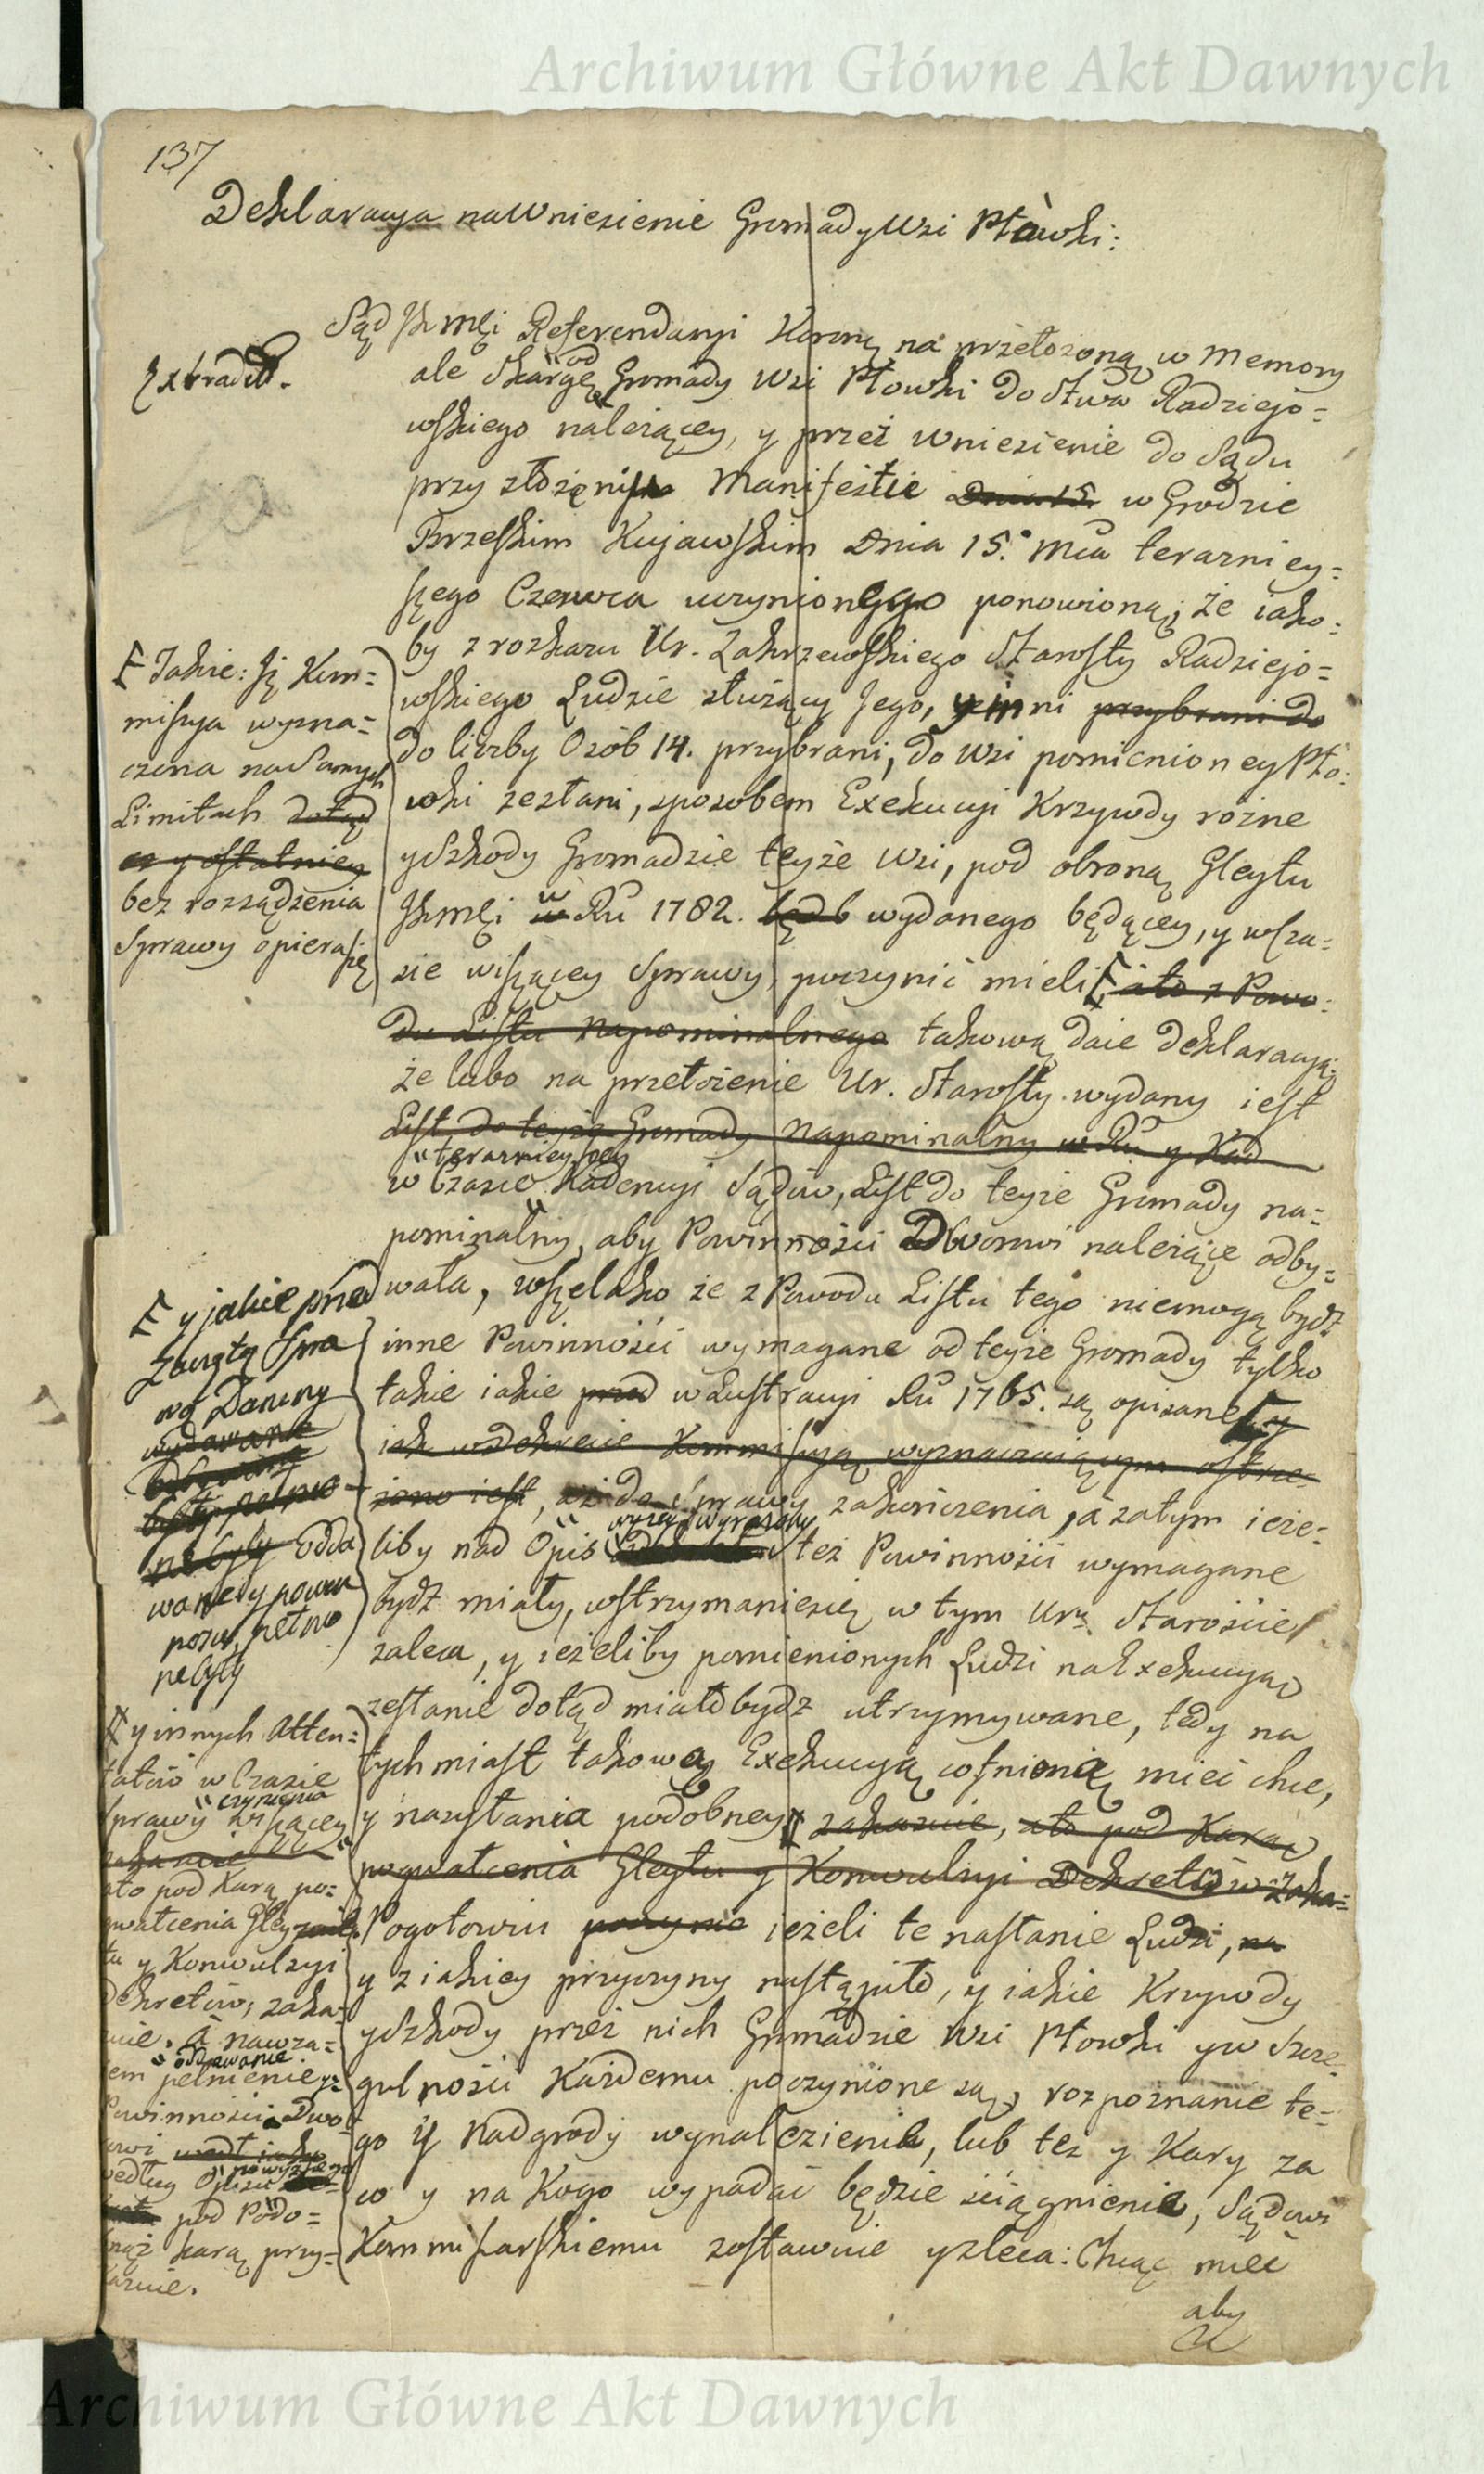 Archiwum Główne Akt Dawnych
137
Deklaracya na Wniesienie Gromady Wsi Płowki:
Extradit.
Sąd JKMći Referendaryi Koronny na przełożoną w Memory
ale Skargę od Gromady Wsi Płowki do Stwa Radziejo=
wskiego należącey, y przez wniesienie do Sądu
przy złożeniu Manifestie Dnia 15 w Grodzie
Brzeskim Kujawskim Dnia 15. Mca terazniey=
szego Czerwca uczynionego ponowioną, że iako=
by z rozkazu Ur. Zakrzewskiego Starosty Radziejo=
wskiego Ludzie służący Jego, y inni przybrani do
do liczby Osób 14. przybrani, do Wsi pomienioney Pło=
wki zesłani, sposobem Exekucyi Krzywdy rożne
y Szkody Gromadzie teyże Wsi, pod obroną Gleytu
JKMći w Ru 1782. wydanego będącey, y w cza=
sie wiszącey Sprawy, poczynić mieli, a to z Powo=
du Listu Napominalnego takową daie deklaracyą:
że lubo na przełożenie Ur. Starosty wydany iest
List do teyże Gromady Napominalny w Ru y Kad
w Czasie terazniejszey Kadencyi Sądów, List do teyże Gromady na=
pominalny, aby Powinności Dworowi należące odby=
wała, wszelako że z Powodu Listu tego niemogą bydź
inne Powinności wymagane od teyże Gromady tylko
takie iakie przed w Lustracyi Ru 1765. są opisane y
iak w dekrecie Kommissyą wyznaczaiącym ostrze=
żono iest, aż do Sprawy zakończenia, a zatym ieże=
liby nad Opis wyżey wyrażony też Powinności wymagane
bydź miały, wstrzymanie się w tym Urm Staroście
zaleca, y ieżeliby pomienionych Ludzi na Exekucyą
zesłanie dotąd miało bydź utrzymywane, tedy na
tychmiast takową Exekucyą cofnioną mieć chce,
y nasyłania podobney zakazuie, a to pod Karą
pogwałcenia Gleytu y Konwulsyi Dekretów zaka=
Pogotowiu ieżeli te nasłanie Ludzi, na
y z iakiey przyczyny nastąpiło, y iakie Krzywdy
y Szkody przez nich Gromadzie Wsi Płowki y w Szcze=
gulności Każdemu poczynione są, rozpoznanie te=
go y Nadgrody wynalezienie, lub też y Kary za
co y na Kogo wypadać będzie ściągnienie, Sądowi
Kommisarskiemu zostawuie y zleca: Chcąc mieć
aby
Jakie: Kom=
missya wyzna=
czona na Samych
Limitach dotąd
y ostatniey
bez rozsądzenia
Sprawy opiera się
y jakie przed
zaczętą Spra
wą Daniny
wydawane
oddawane y powin
pełnio
ne były
y innych Atten=
tatów w Czasie
czynienia
Sprawy wiszącey
ato pod Karą po=
gwałcenia Gley
tu y Konwulsyi
Dekretów, zaka
zuie. A nawza=
oddawanie
iem pełnienie
Powinności Dwo
rowi
według Opisu powyższego
pod Podo=
bnąż karą przy=
kazuie.
Archiwum Główne Akt Dawnych